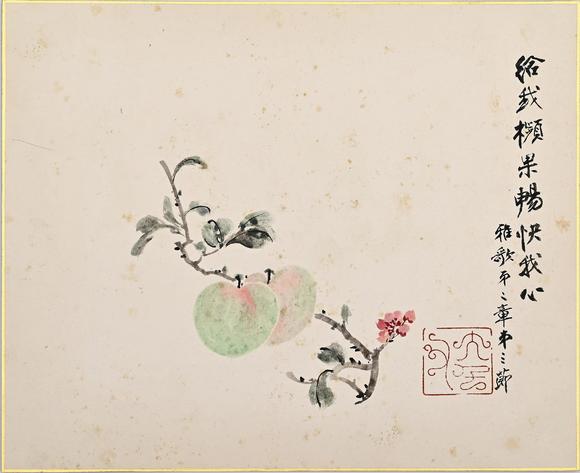 給我櫇果暢快我心
雅歌第二章第三節